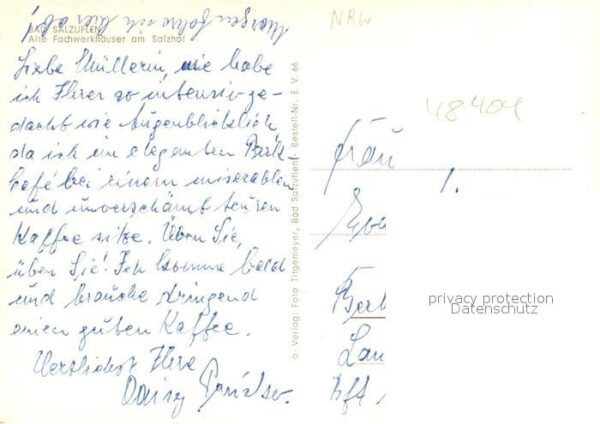 Morgen fahre ich hier ab!
BAD SALZUFLEN
Alte Fachwerkhäuser am Salzhof
Liebe Müllerin, nie habe
ich Ihrer so intensiv ge-
dacht wie augenblicklich
da ich im eleganten Park-
kaffé bei einem miserablen
und unverschämt teuren
Kaffee sitze. Üben Sie,
üben Sie! Ich komme bald
und brauche dringend
einen guten Kaffee.
Herzlichst Ihre
Daisy
a. Verlag: Foto Tilgemeyer, Bad Salzuflen Bestell-Nr. E. V. 66
NRW
48404
Frau
1.
privacy protection
Datenschutz